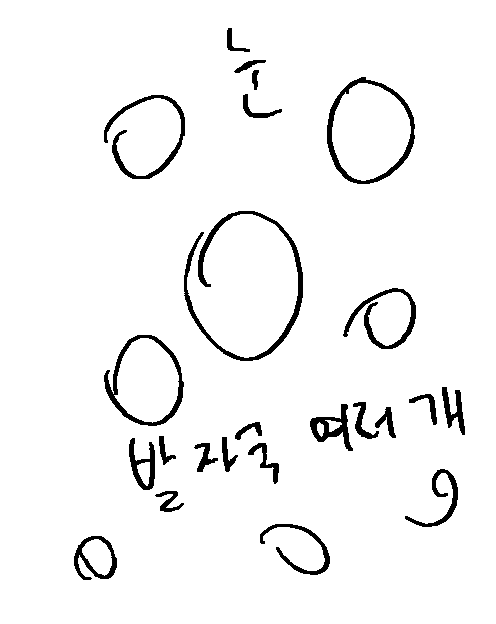 눈
발자국 여러 개